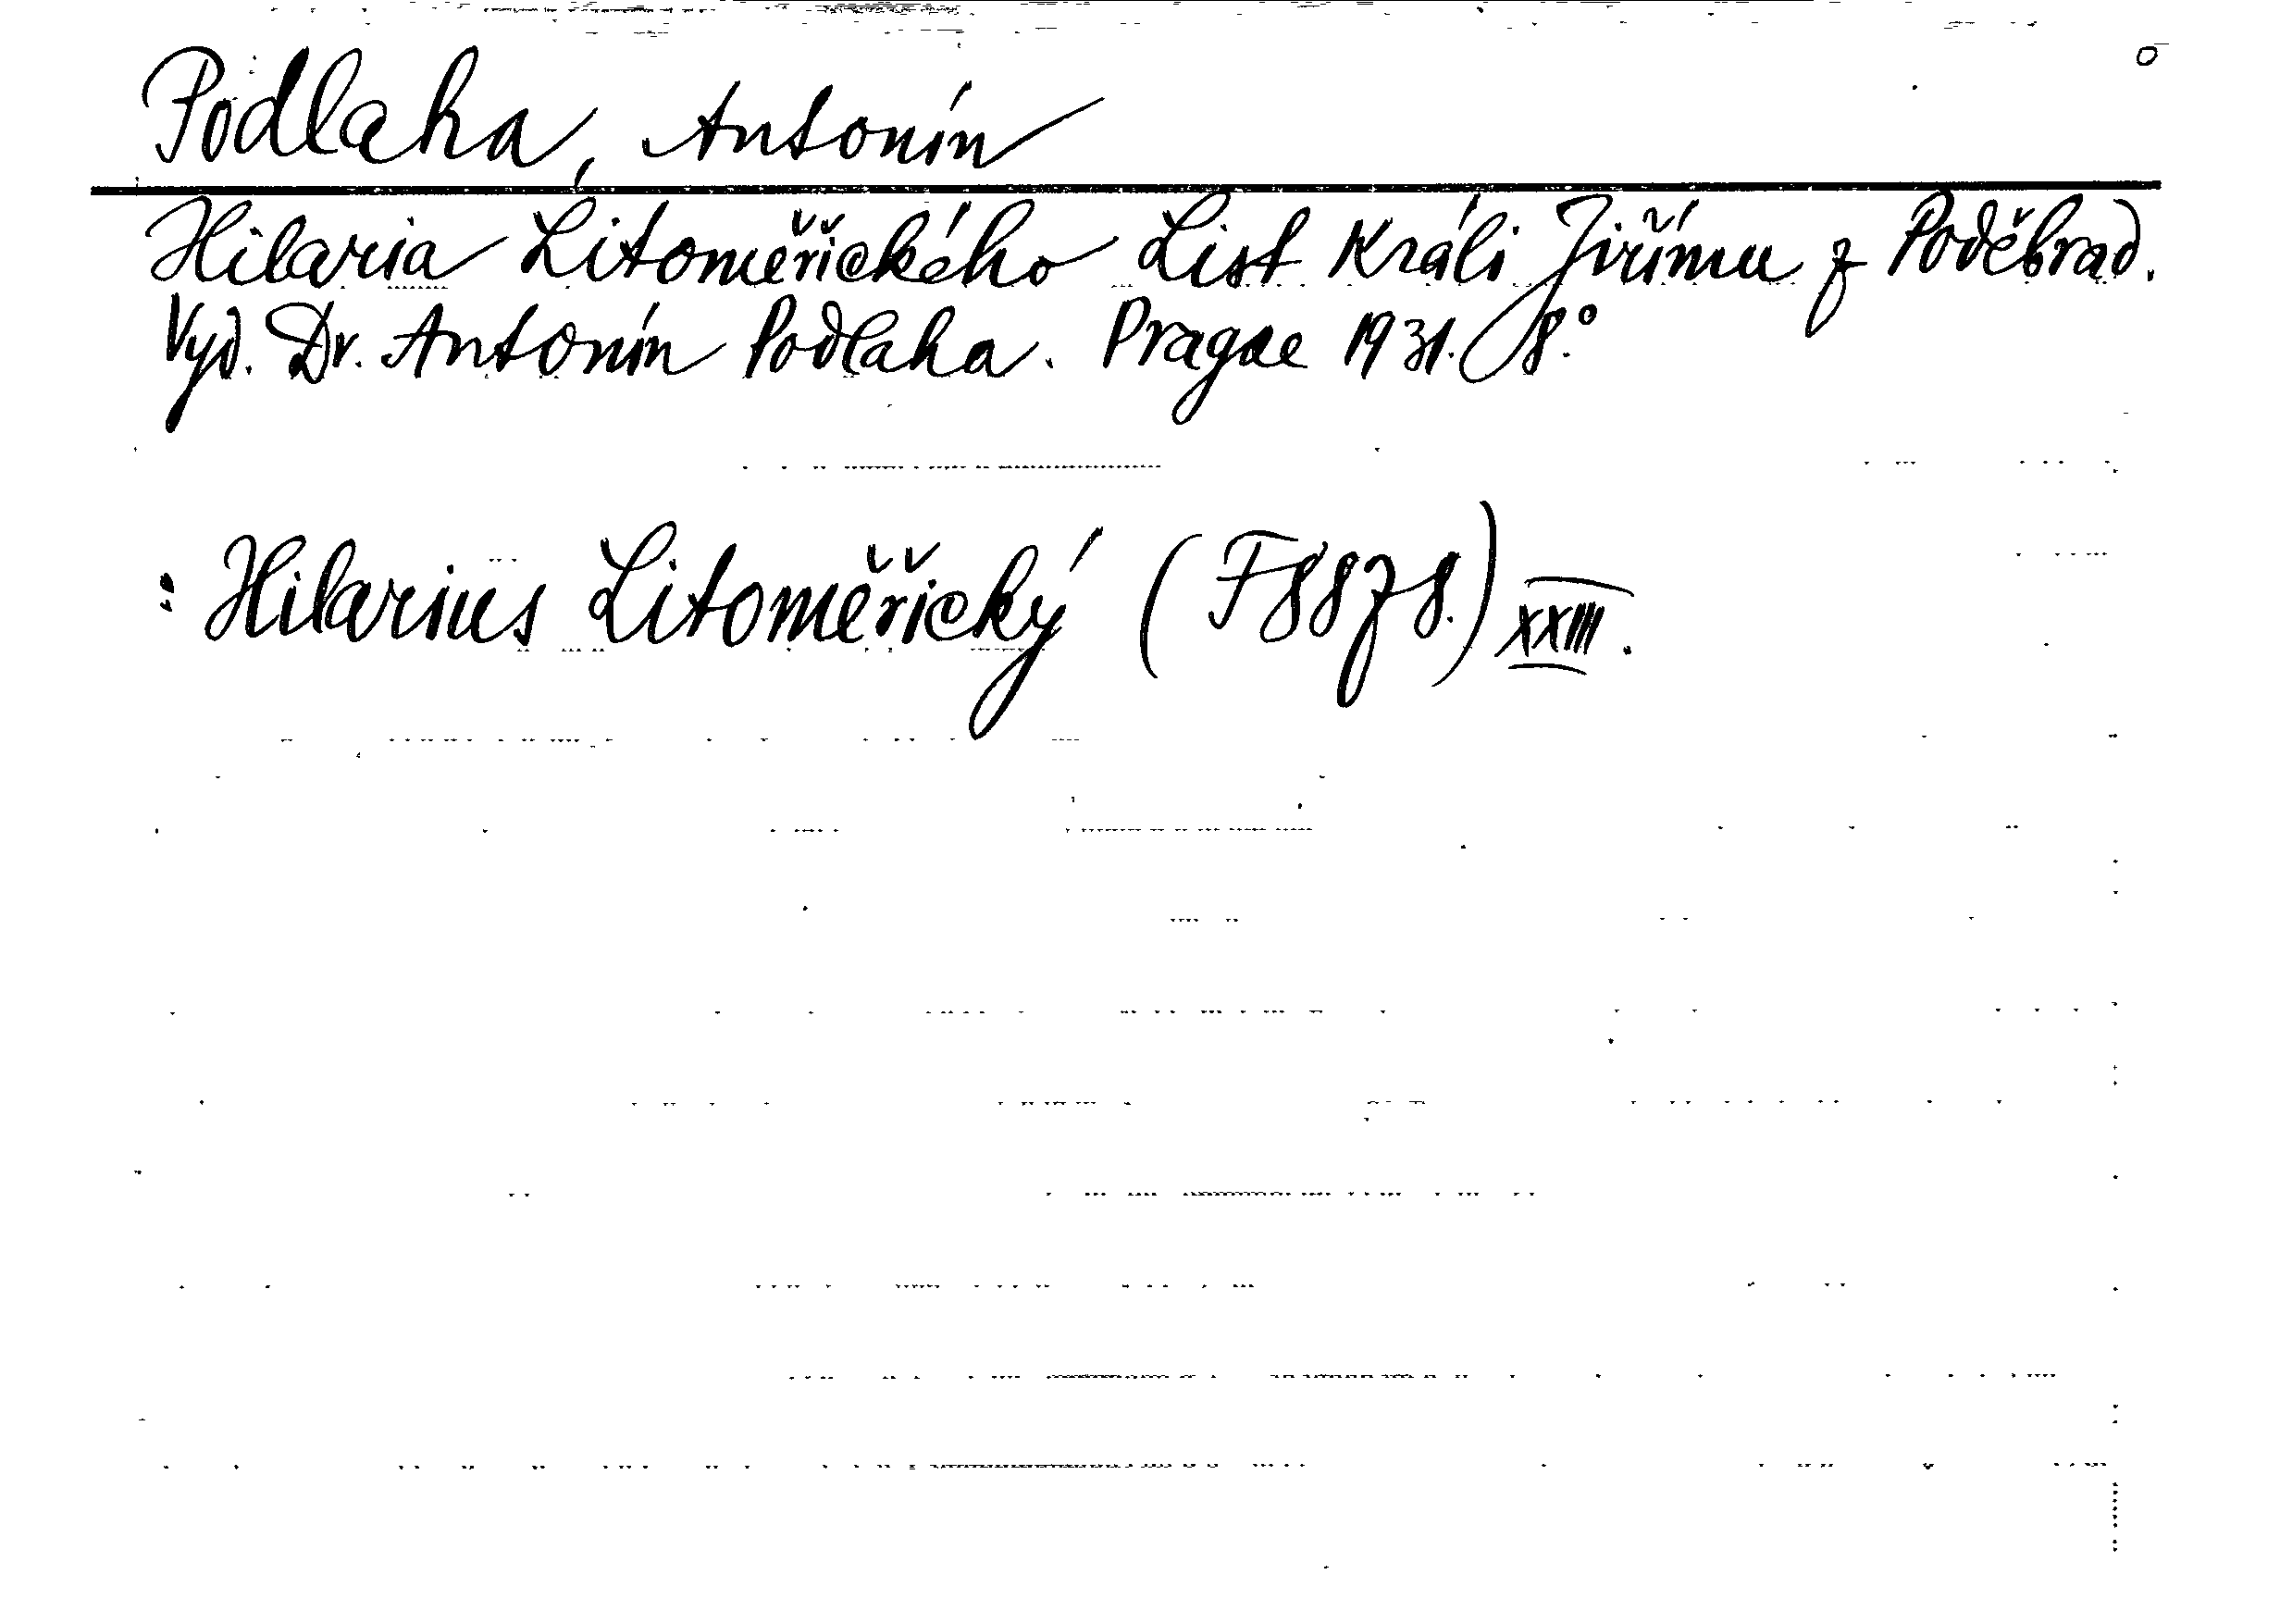 Podlaha, Antonín
Hilaria Litoměřického List Králi Jiřímu z Poděbrad.
Vyd. Dr. Antonín Podlaha. Pragae 1931. 8°.
: Hilarius Litoměřický (F 88 z 8.) XXIII.